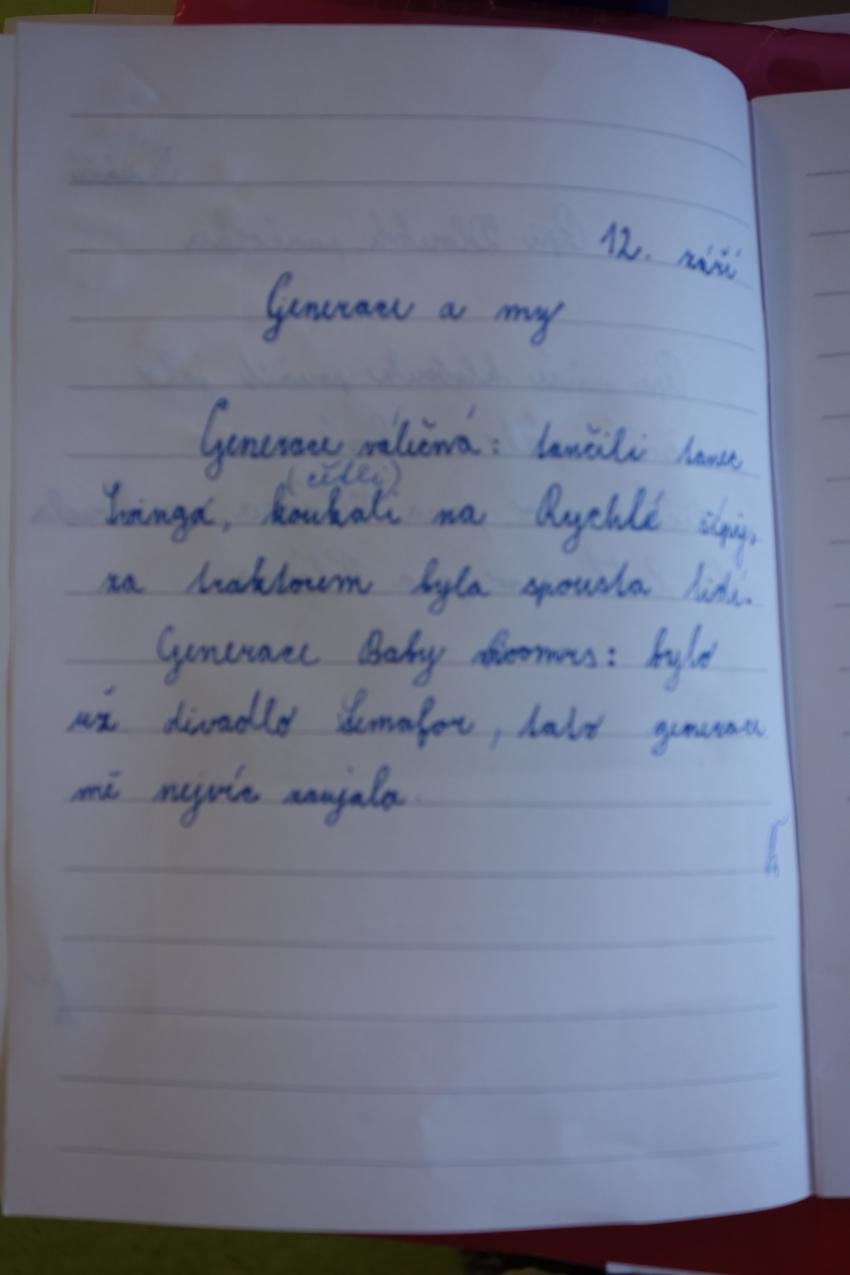 12. září
Generace a my
Generace válečná: tančili tanec
(četli)
Swinga, koukali na Rychlé šípy,
za traktorem byla spousta lidí.
Generace Baby Boomrs: bylo
už divadlo Semafor, tato generace
mě nejvíc zaujala.